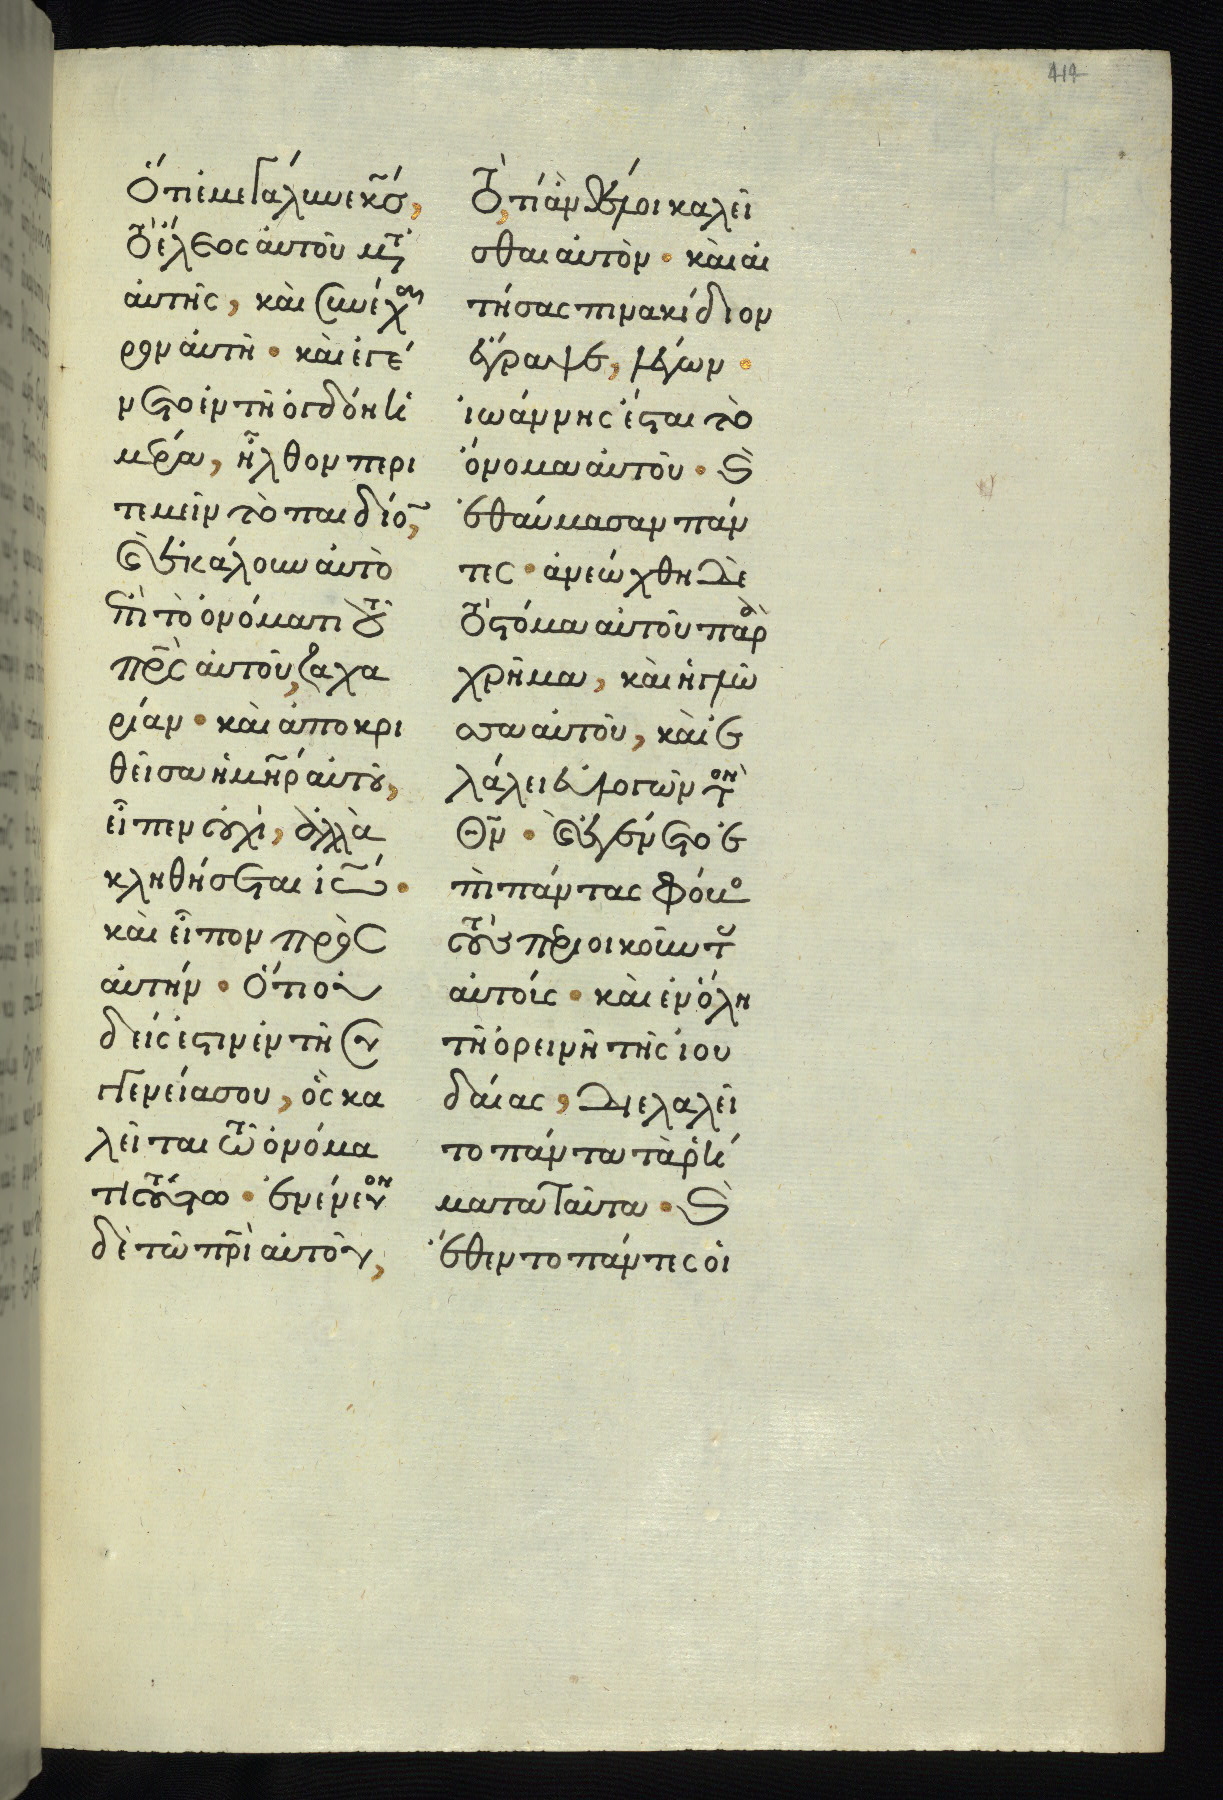 419
ὅτι ἐμεγάλυνε κς,
τὸ ἔλεος αὐτοῦ μετ
αὐτῆς, καὶ συνέχαι
ρον αὐτῆ · καὶ ἐγέ
νετο ἐν τῆ ὀγδόη ἡ
μέρα, ἦλθον περι
τεμεῖν τὸ παιδίον,
καὶ ἐκάλουν αὐτὸ
ἐπὶ τῶ ὀνόματι τοῦ
πρς αὐτοῦ, ζαχα
ρίαν · καὶ ἀποκρι
θεῖσα ἡ μηρ αὐτοῦ,
εἶπεν οὐχὶ, ἀλλὰ
κληθήσεται ἰω ·
καὶ εἶπον πρὸς
αὐτήν · ὅτι οὐ
δείς ἐστιν ἐν τῆ συγ
γενεία σου, ὃς κα
λεῖται τῶ ὀνόμα
τι τούτω · ἐνένευον
δὲ τῶ πρι αὐτοῦ,
τὸ, τί ἂν θέλοι καλεῖ
σθαι αὐτὸν · καὶ αἰ
τήσας πινακίδιον
ἔγραψε, λέγων ·
ἰωάννης ἐσται τὸ
ὄνομα αὐτοῦ · καὶ
ἐθαύμασαν πάν
τες · ἀνεώχθη δὲ
τὸ στόμα αὐτοῦ παρα
χρῆμα, καὶ ἡ γλῶ
σσα αὐτοῦ, καὶ ἐ
λάλει εὐλογῶν τὸν
θν · καὶ ἐγένετο ἐ
πὶ πάντας φόβος
τοὺς περιοικοῦντας
αὐτούς · καὶ ἐν ὅλη
τῆ ὀρεινῆ τῆς ἰου
δαίας, διελαλεῖ
το πάντα τὰ ῥή
ματα ταῦτα · καὶ
ἔθεντο πάντες οἱ